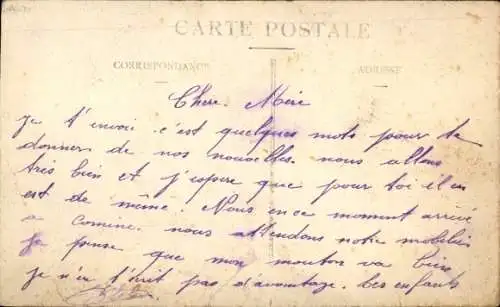 CARTE POSTALE
CORRESPONDANCE
ADRESSE
Chere Mère
Je t'envoi c'est quelques mots pour te
donner de nos nouvelles. nous allons
très bien et j'espere que pour toi il en
est de même Nous en ce moment arrivé
a Comine. nous attendons notre mobilier
je pense que mon mouton va bien
je n'en t'écrit pas d'avantage. les enfants